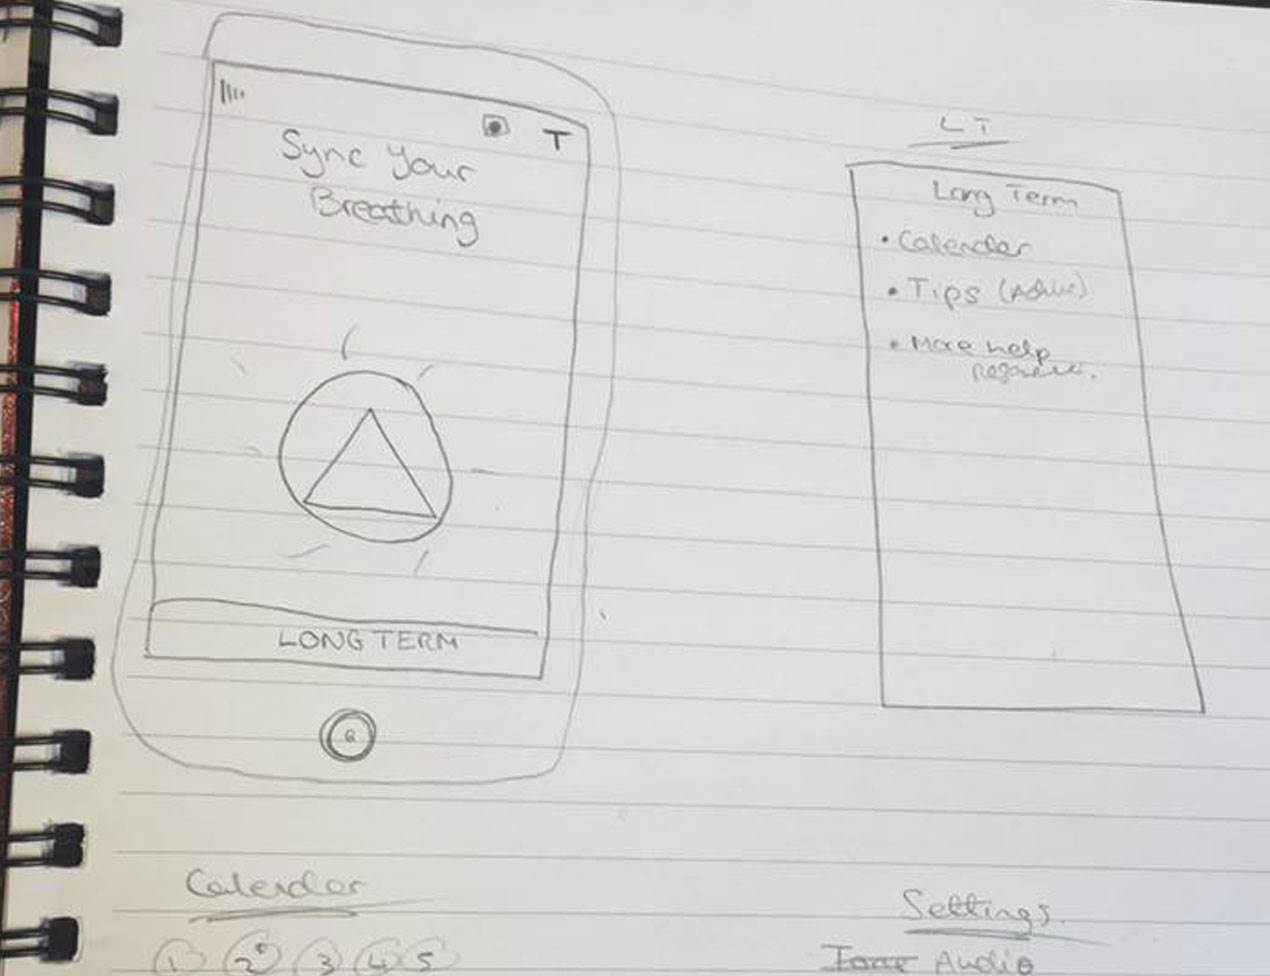 T
Sync Your
Breathing
LONG TERM
LT
Long Term
• Calender
• Tips
• More help
Calendar
1 2 3 4 5
Settings.
Audio